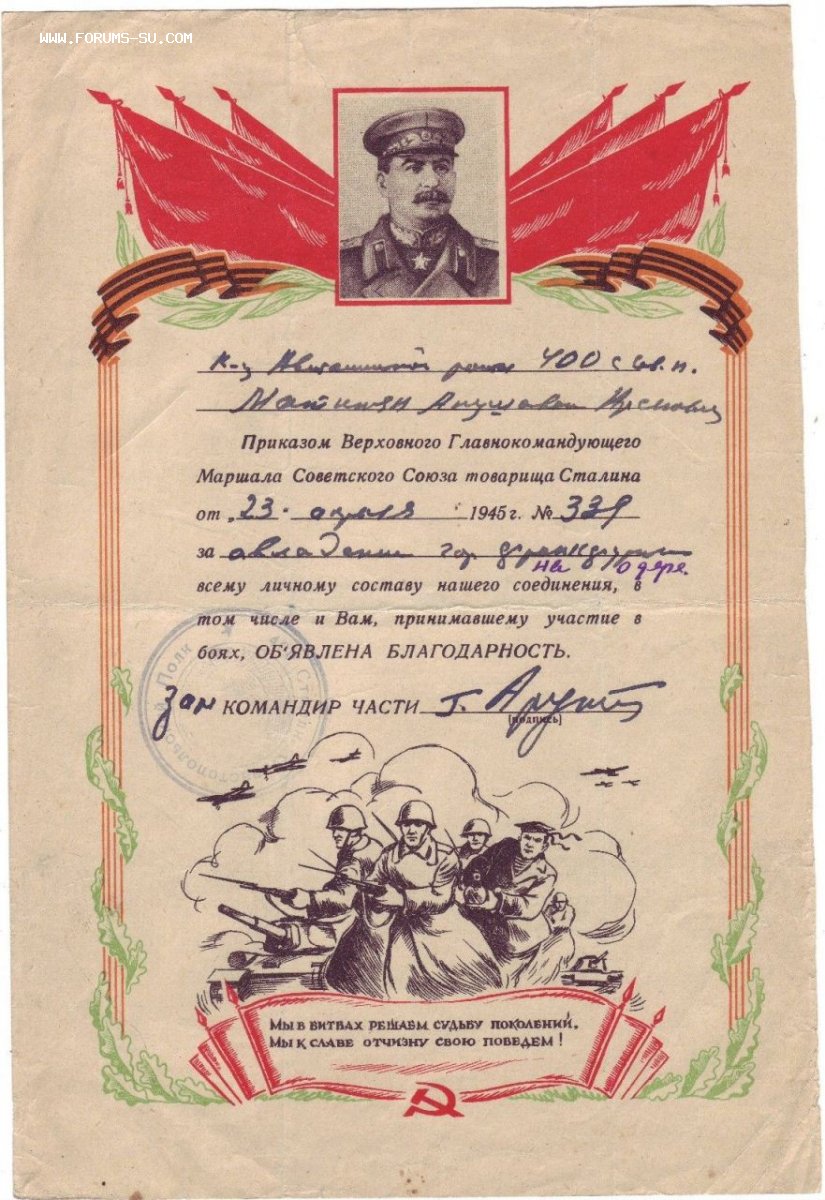 WWW.FORUMS-SU.COM
к-ц 400 с
Приказом Верховного Главнокомандующего
Маршала Советского Союза товарища Сталина
от 23. апреля 1945 г. № 339
за овладение гор. Франкфурт
на Одере.
всему личному составу нашего соединения, в
том числе и Вам, принимавшему участие в
боях, ОБ'ЯВЛЕНА БЛАГОДАРНОСТЬ.
Зам КОМАНДИР ЧАСТИ
(подпись)
Полк
Мы в битвах решаем судьбу поколений,
Мы к славе отчизну свою поведем!